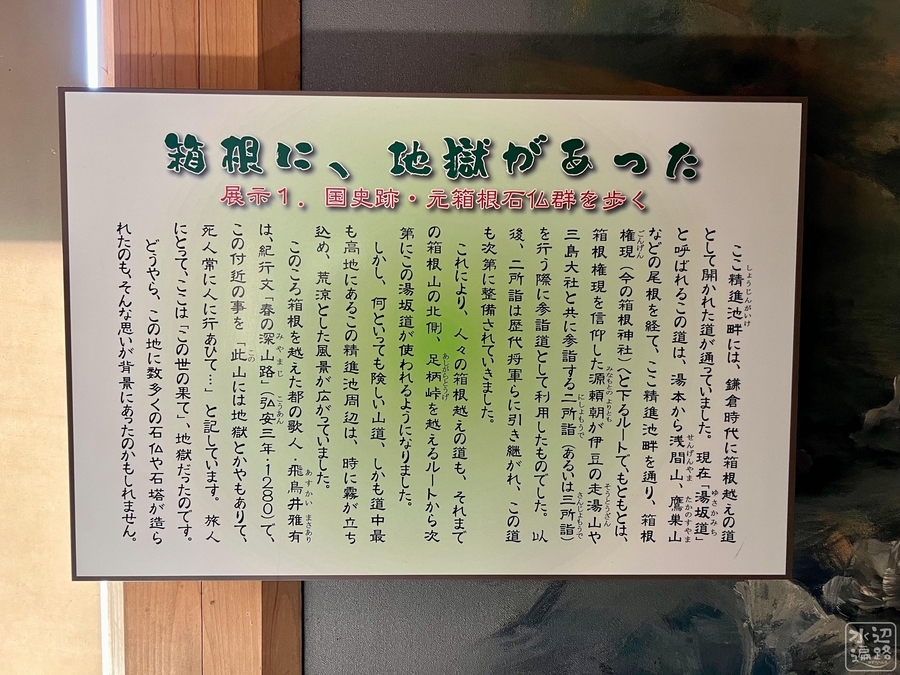 箱根に、地獄があった
展示1．国史跡・元箱根石仏群を歩く
ここ精進池畔には、鎌倉時代に箱根越えの道
として開かれた道が通っていました。現在「湯坂道」
と呼ばれるこの道は、湯本から浅間山、鷹巣山
などの尾根を経て、ここ精進池畔を通り、箱根
権現（今の箱根神社）へと下るルートで、もともとは、
箱根権現を信仰した源頼朝が伊豆の走湯山や
三島大社と共に参詣する二所詣（あるいは三所詣）
を行う際に参詣道として利用したものでした。以
後、二所詣は歴代将軍らに引き継がれ、この道
も次第に整備されていきました。
これにより、人々の箱根越えの道も、それまで
の箱根山の北側、足柄峠を越えるルートから次
第にこの湯坂道が使われるようになりました。
しかし、何といっても険しい山道、しかも道中最
も高地にあるこの精進池周辺は、時に霧が立ち
込め、荒涼とした風景が広がっていました。
このころ箱根を越えた都の歌人・飛鳥井雅有
は、紀行文「春の深山路」（弘安三年・1280）で、
この付近の事を「此山には地獄とかやもありて、
死人常に人に行あひて…」と記しています。旅人
にとって、ここは「この世の果て」、地獄だったのです。
どうやら、この地に数多くの石仏や石塔が造ら
れたのも、そんな思いが背景にあったのかもしれません。
しょうじんがいけ
ゆさかみち
せんげんやま
たかのすやま
ごんげん
みなもとのよりとも
そうとうざん
にしょもうで
さんしょもうで
あしがらとうげ
あすかい まさあり
みやまじ
こうあん
この
水辺遍路